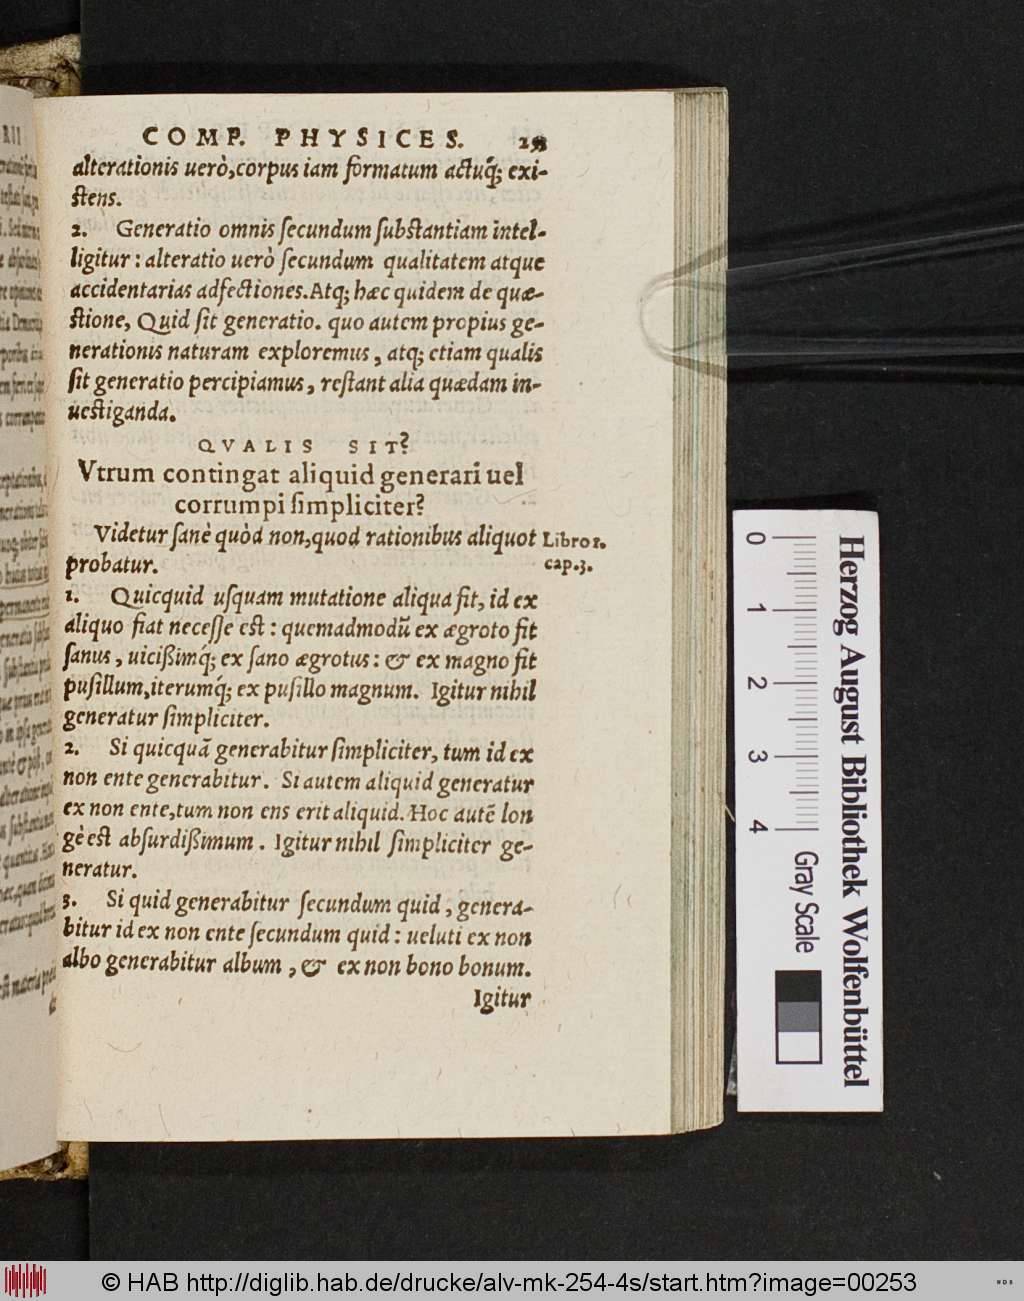 COMP. PHYSICES.
alterationis uerò, corpus iam formatum actuq́; exi-
stens.
2. Generatio omnis secundum substantiam intel-
ligitur : alteratio uerò secundum qualitatem atque
accidentarias adfectiones. Atq; hæc quidem de quæ-
stione, Quid sit generatio. quo autem propius ge-
nerationis naturam exploremus, atq; etiam qualis
sit generatio percipiamus, restant alia quædam in-
uestiganda.
QVALIS SIT?
Vtrum contingat aliquid generari uel
corrumpi simpliciter?
Videtur sanè quòd non, quod rationibus aliquot
Libro 1.
cap. 3.
probatur.
1. Quicquid usquam mutatione aliqua fit, id ex
aliquo fiat necesse est : quemadmodũ ex ægroto fit
sanus, uicißimq́; ex sano ægrotus : & ex magno fit
pusillum, iterumq́; ex pusillo magnum. Igitur nihil
generatur simpliciter.
2. Si quicquã generabitur simpliciter, tum id ex
non ente generabitur. Si autem aliquid generatur
ex non ente, tum non ens erit aliquid. Hoc autẽ lon
gè est absurdißimum. Igitur nihil simpliciter ge-
neratur.
3. Si quid generabitur secundum quid, genera-
bitur id ex non ente secundum quid : ueluti ex non
albo generabitur album, & ex non bono bonum.
Igitur
0 1 2 3 4
Gray Scale
Herzog August Bibliothek Wolfenbüttel
© HAB http://diglib.hab.de/drucke/alv-mk-254-4s/start.htm?image=00253